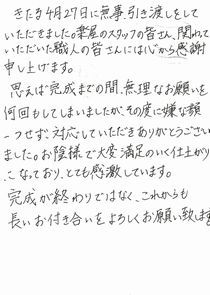 きたる4月27日に無事、引き渡しをして
いただきました。楽屋のスタッフの皆さん、関わって
いただいた職人の皆さんには心から感謝
申し上げます。
思えば完成までの間、無理なお願いを
何回もしてしまいましたが、その度に嫌な顔
一つせず、対応していただきありがとうござい
ました。お陰様で大変満足のいく仕上がり
になっており、とても感激しています。
完成が終わりではなく、これからも
長いお付き合いをよろしくお願い致します